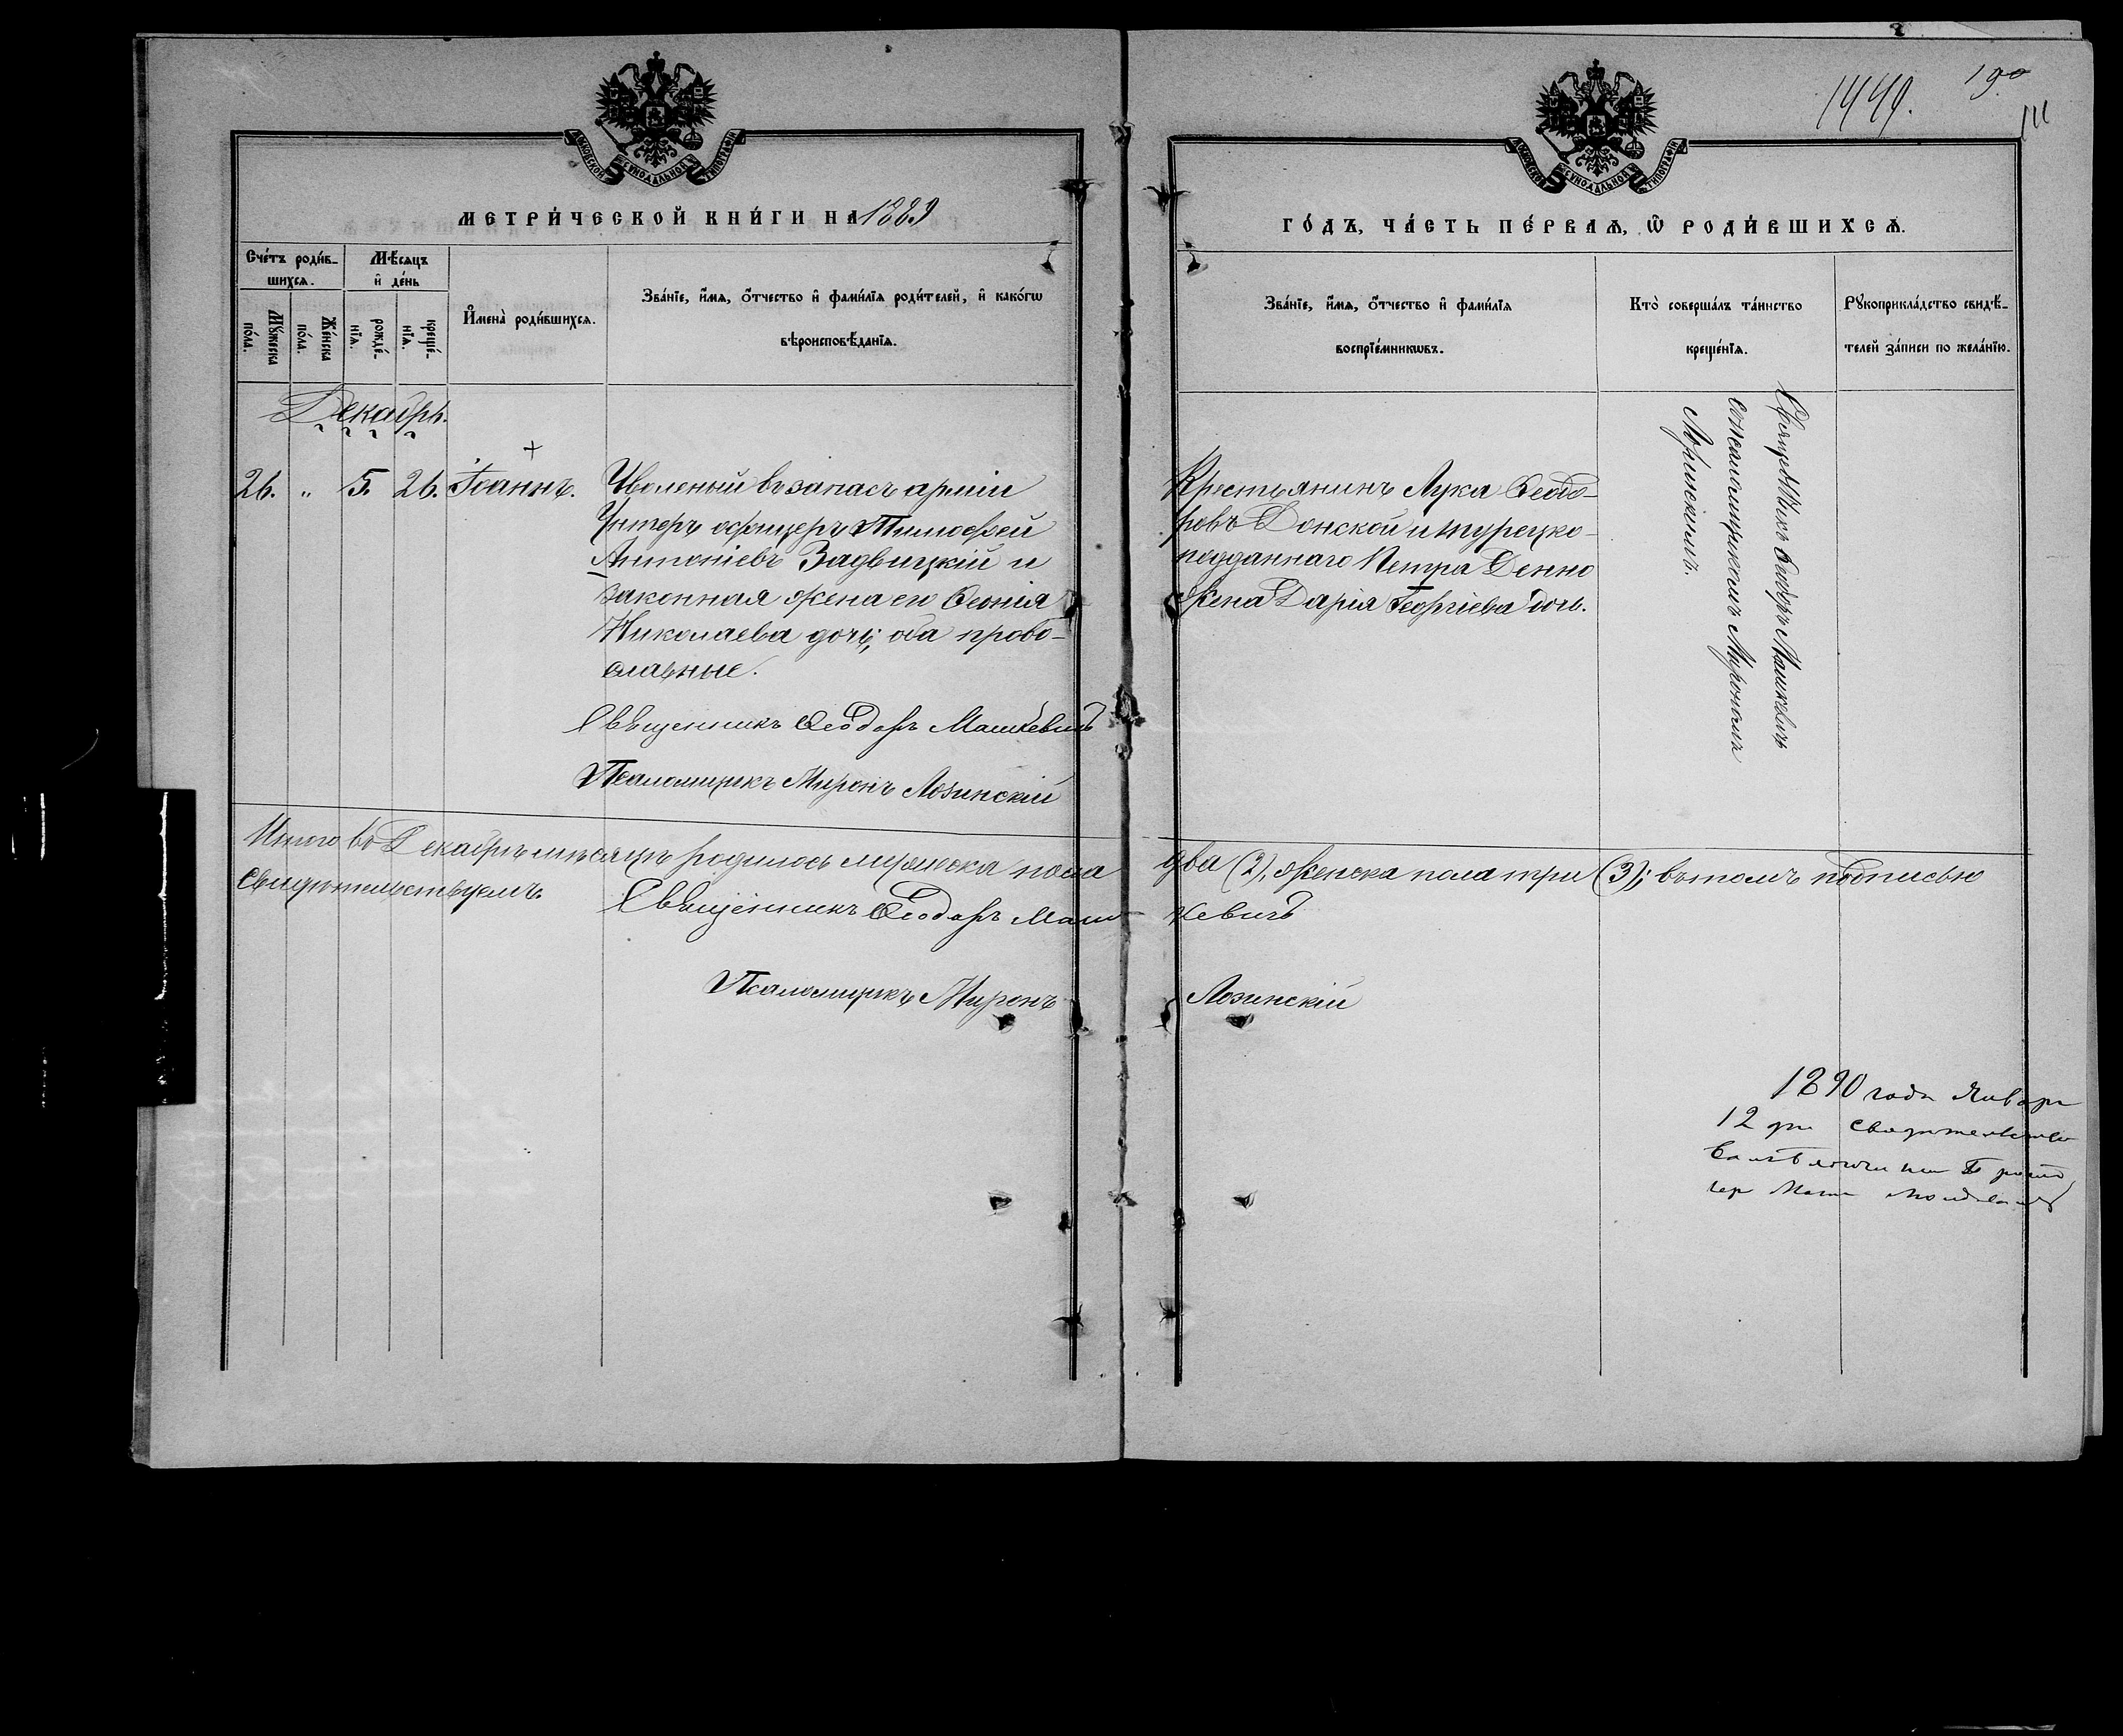 1449.
190
111
МОСКОВСКОЙ СѴНОДАЛЬНОЙ ТИПОГРАФІИ
МОСКОВСКОЙ СѴНОДАЛЬНОЙ ТИПОГРАФІИ
МЕТРИ́ЧЕСКОЙ КНИ́ГИ НА 1889
ГО́ДЪ, ЧА́СТЬ ПЕ́РВАѦ, Ѡ҆ РОДИ́ВШИХСѦ.
Сче́тъ роди́в-
шихсѧ.
Мѣ́сѧцъ
и҆ де́нь
Мꙋ́жеска
по́ла.
Же́нска
по́ла.
рожде́-
нїѧ.
креще́-
нїѧ.
И҆мена̀ роди́вшихсѧ.
Зва́нїе, и҆́мѧ, ѻ҆́тчество и҆ фами́лїѧ роди́телей, и҆ како́гѡ
вѣроисповѣ́данїѧ.
Зва́нїе, и҆́мѧ, ѻ҆́тчество и҆ фами́лїѧ
воспрїе́мникѡвъ.
Кто̀ соверша́лъ та́инство
креще́нїѧ.
Рꙋкоприкла́дство свидѣ́-
телей за́писи по жела́нїю.
Декабрь.
26. " 5. 26. Іоаннъ.
Уволеный въ запасъ арміи
Унтеръ офицеръ Тимофей
Антоніевъ Задвицкій и
законная жена его Ѳеонія
Николаева дочь; оба право-
славные.
Священникъ Ѳеодоръ Машкевичъ
Псаломщикъ Миронъ Лозинскій
Крестьянинъ Лука Ѳеодо-
ровъ Донской и турецко-
подданнаго Петра Денно
жена Дарія Георгіева дочь.
Священникъ Ѳеодоръ Машкевичъ
съ псаломщикомъ Мирономъ
Лозинскимъ.
Итого въ Декабрѣ мѣсяцѣ родилось мужеска пола два (2), женска пола три (3); въ томъ подписью
свидѣтельствуемъ.
Священникъ Ѳеодоръ Машкевичъ
Псаломщикъ Миронъ Лозинскій
1890 года Января
12 дня свидѣтельство